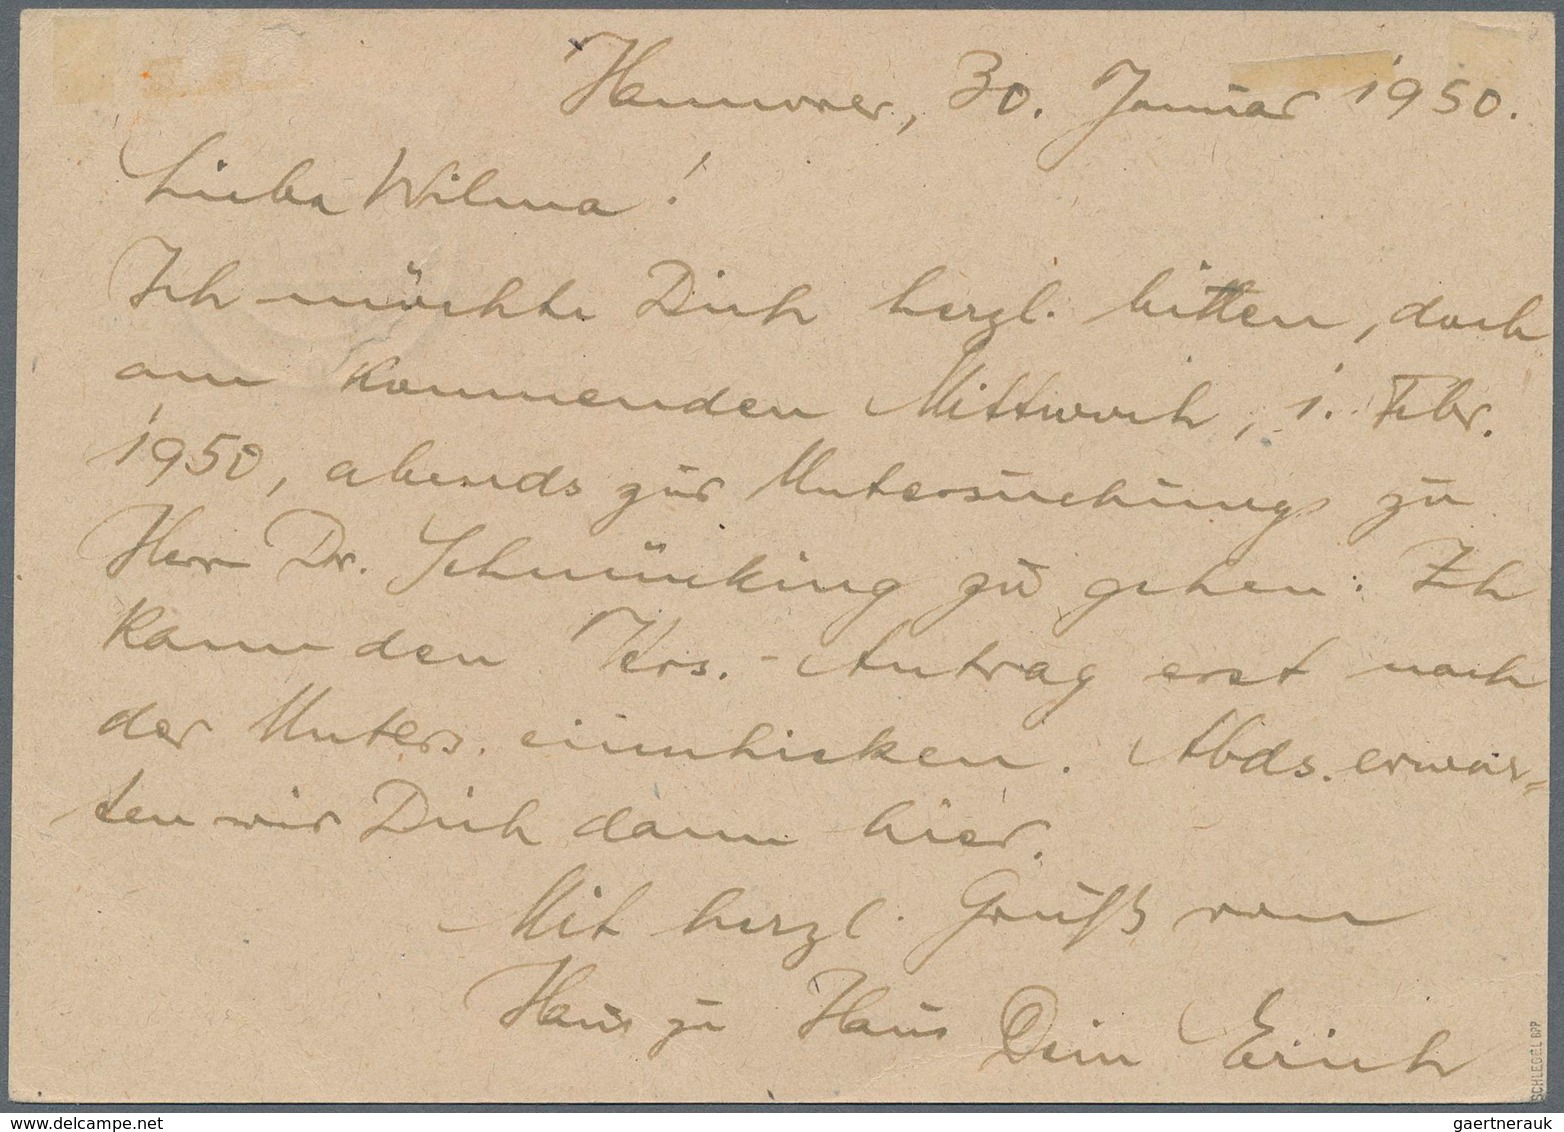 Hannover, 30. Januar 1950.
Liebe Wilma!
Ich möchte Dich herzl. bitten, doch
am kommenden Mittwoch, 1. Febr.
1950, abends zur Untersuchung zu
Herrn Dr. Schmücking zu gehen. Ich
kann den Vers.-Antrag erst nach
der Unters. einschicken. Abds. erwar=
ten wir Dich dann hier.
Mit herzl. Gruß von
Haus zu Haus Dein Erich
SCHLEGEL BPP
gaertnerauk // delcampe.net